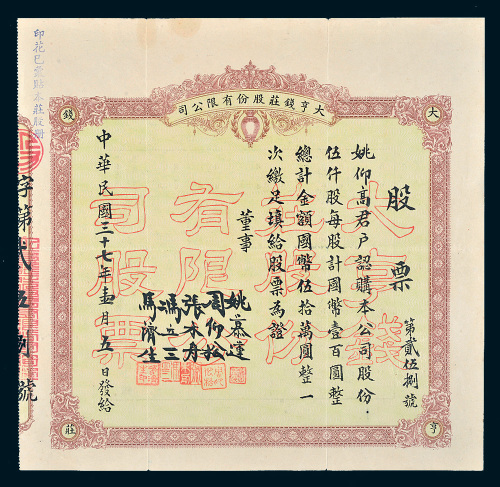 大亨錢莊股份有限公司
大
錢
亨
莊
股票
第貳伍捌號
姚仰高君戶認購本公司股份
伍仟股每股計國幣壹百圓整
總計金額國幣伍拾萬圓整一
次繳足填給股票為證
董事
姚慕蓮
周仰松
張木舟
馮立三
馬濟生
中華民國三十七年 月五日發給
大亨錢
莊股份
有限公
司股票
字第貳伍捌號
印花已 貼本莊股冊